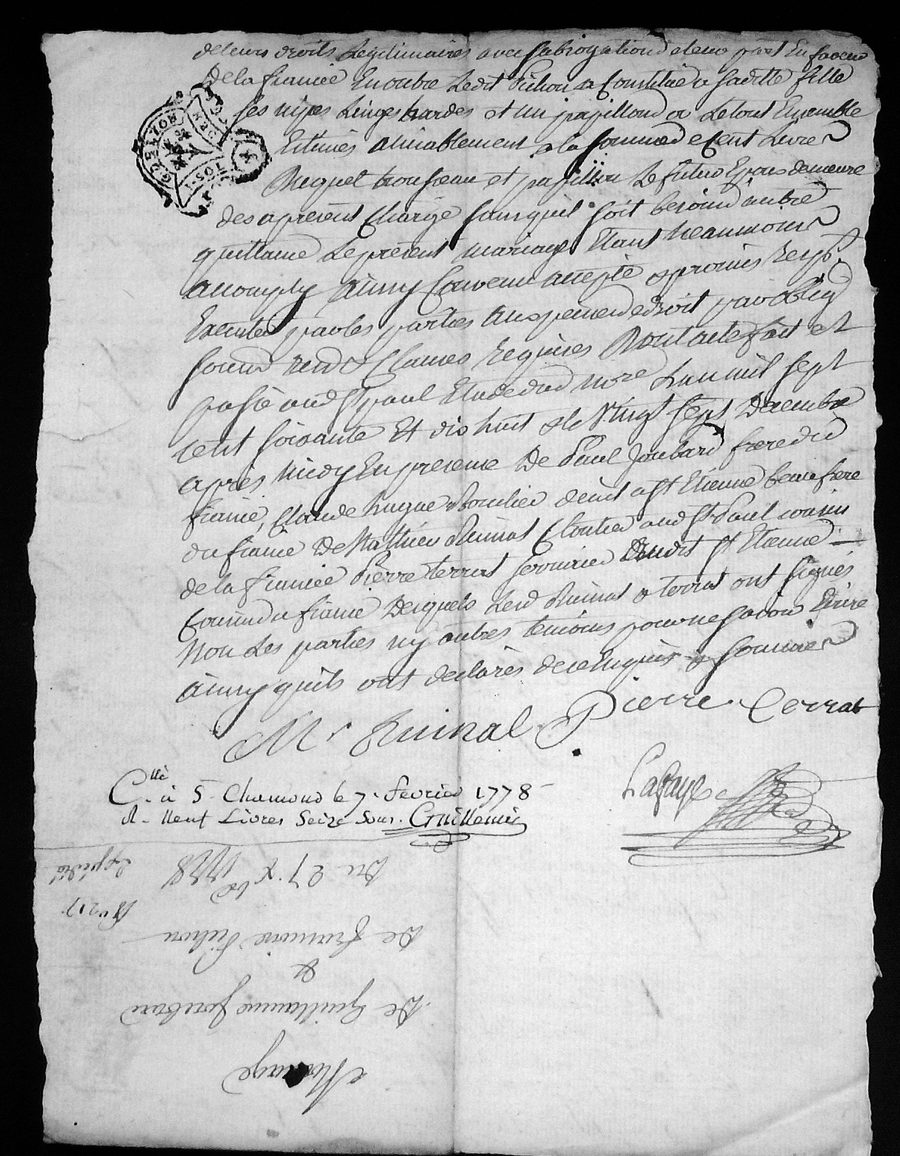 de leurs droits Legitimaires avec subrogation a leur part En faveur
de la fiancée En outre Ledit Pichon a Constitué a Saditte fille
ses nipes Linges hardes et un papillon d or Le tout Ensemble
Estimés amiablement a la somme de Cent Livres
Duquel trousseau et papillon Le futur Epoux demeure
des apresent Chargé sans quil soit besoin dautre
quittance Le present mariage Etant neanmoins
accomply ainsy Convenu accepté & promis
Executer par les parties aux peines de droit par oblig
soum renon & Clauses requises Dont acte fait et
passé aud St paul Etude dud nore Lan mil sept
cent soixante Et dix huit & le Vingt sept Decembre
après midy En presence De Paul Joubard frere du
fiancé, Claude hugue Boulier demt a St Etienne beau frere
du fiancé De Mathieu Ruinat Cloutier aud St Paul cousin
de la fiancée Pierre terrat serrurier demt St Etienne
Cousin du fiancé Desquels Lesd Ruinat & terrat ont signés
Non Les parties ny autres temoins pour ne savoir Ecrire
ainsy quils ont declarés de ce Enquis & sommés
Mr Ruinat Pierre Terrat
Lafay
C.llé à S. Chamond le 7. février 1778
R. Neuf Livres Seize sous. Guillemin
Mariage
De Guillaume Joubard
&
De francoise Pichon
Du 27 Xbre 1778
No 217.
Expédié